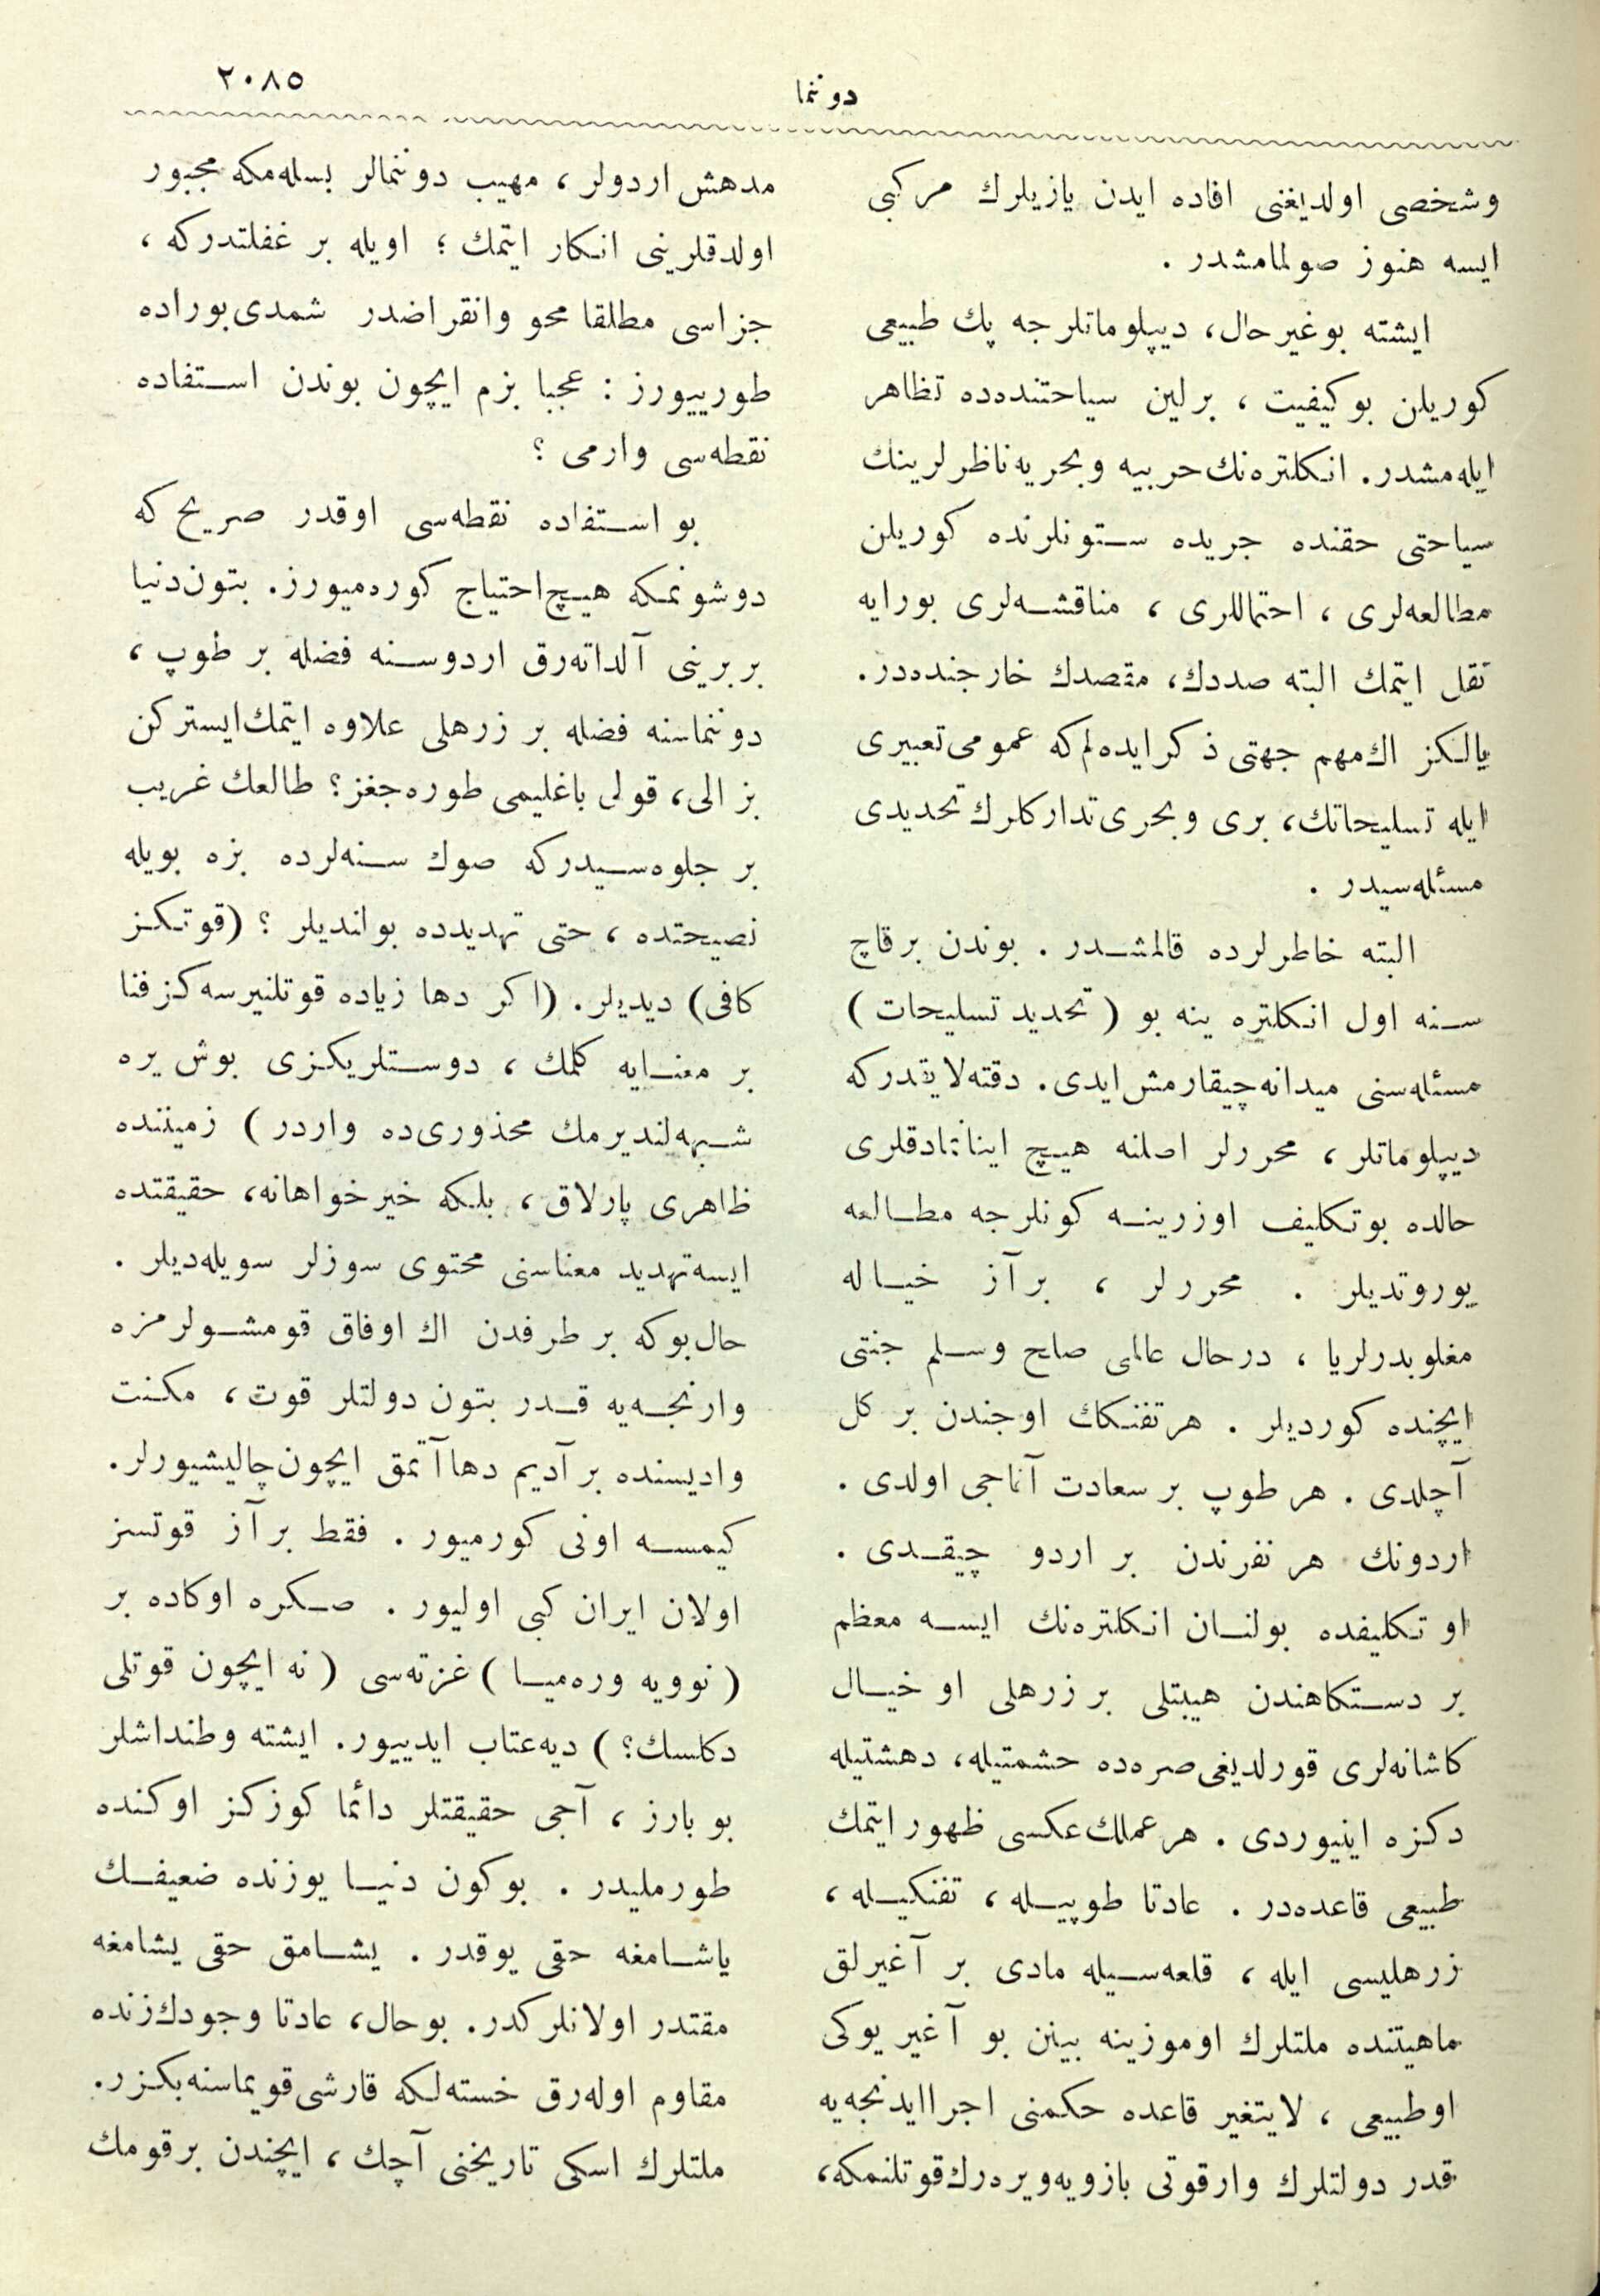 دوننما
٢٠٨٥
وشخصی اولدیغنی افاده ایدن یازیلرك مركبی
ایسه هنوز صولمامشدر .
ایشته بوغیرحال، دیپلوماتلرجه پك طبیعی
كوریلن بوكیفیت ، برلین سیاحتنده‌ده تظاهر
ایله‌مشدر. انكلتره‌نك حربیه وبحریه ناظرلرینك
سیاحتی حقنده جریده ستونلرنده كوریلن
مطالعه‌لری ، احتماللری ، مناقشه‌لری بورایه
نقل ایتمك البته صددك، مقصدك خارجنده‌در.
یالكز اك‌مهم جهتی ذكرایده‌لم‌كه عمومی‌تعبیری
ایله تسلیحاتك، بری وبحری‌تداركلرك تحدیدی
مسئله‌سیدر .
البته خاطرلرده قالمشدر . بوندن برقاچ
سنه اول انكلتره ینه بو ( تحدید تسلیحات )
مسئله‌سنی میدانه‌چیقارمش‌ایدی. دقته‌لایقدركه
دیپلوماتلر ، محررلر اصلنه هیچ اینانمادقلری
حالده بوتكلیف اوزرینه كونلرجه مطالعه
یوروتدیلر . محررلر ، برآز خیاله
مغلوبدرلریا ، درحال عالمی صلح وسلم جنتی
ایچنده كوردیلر . هرتفنكك اوجندن بر كل
آچلدی . هر طوپ بر سعادت آناجی اولدی .
اردونك هر نفرندن بر اردو چیقدی .
او تكلیفده بولنان انكلتره‌نك ایسه معظم
بر دستكاهندن هیبتلی بر زرهلی او خیال
كاشانه‌لری قورلدیغی‌صره‌ده حشمتیله، دهشتیله
دكزه اینیوردی . هرعملك‌عكسی ظهور ایتمك
طبیعی قاعده‌در . عادتا طوپیله ، تفنكیله ،
زرهلیسی ایله ، قلعه‌سیله مادی بر آغیرلق
ماهیتنده ملتلرك اوموزینه بینن بو آغیر یوكی
اوطبیعی ، لایتغیر قاعده حكمنی اجراایدنجه‌یه
قدر دولتلرك وارقوتی بازویه‌ویره‌رك‌قوتلنمكه،
مدهش اردولر ، مهیب دوننمالر بسله‌مكه مجبور
اولدقلرینی انكار ایتمك ؛ اویله بر غفلتدركه ،
جزاسی مطلقا محو وانقراضدر شمدی‌بوراده
طورییورز : عجبا بزم ایچون بوندن استفاده
نقطه‌سی وارمی ؟
بو استفاده نقطه‌سی اوقدر صریح كه
دوشونمكه هیچ‌احتیاج كوره‌میورز. بتون‌دنیا
بربرینی آلداته‌رق اردوسنه فضله بر طوپ ،
دوننماسنه فضله بر زرهلی علاوه ایتمك‌ایستركن
بز الی، قولی باغلیمی طوره‌جغز؟ طالعك غریب
بر جلوه‌سیدركه صوك سنه‌لرده بزه بویله
نصیحتده ، حتی تهدیدده بولندیلر ؟ (قوتكز
كافی) دیدیلر. (اكر دها زیاده قوتلنیرسه‌كز فنا
بر معنایه كلمك ، دوستلریكزی بوش یره
شبهه‌لندیرمك محذوری‌ده واردر ) زمیننده
ظاهری پارلاق ، بلكه خیرخواهانه، حقیقتده
ایسه‌تهدید معناسنی محتوی سوزلر سویله‌دیلر .
حال‌بوكه بر طرفدن اك اوفاق قومشولرمزه
وارنجه‌یه قدر بتون دولتلر قوت ، مكنت
وادیسنده بر آدیم دهاآتمق ایچون‌چالیشیورلر.
كیمسه اونی كورمیور . فقط برآز قوتسز
اولان ایران كبی اولیور . صكره اوكاده بر
( نوویه وره‌میا ) غزته‌سی ( نه ایچون قوتلی
دكلسك؟ ) دیه‌عتاب ایدییور. ایشته وطنداشلر
بو بارز ، آجی حقیقتلر دائما كوزكز اوكنده
طورملیدر . بوكون دنیا یوزنده ضعیفك
یاشامغه حقی یوقدر . یشامق حقی یشامغه
مقتدر اولانلركدر. بوحال، عادتا وجودك‌زنده
مقاوم اوله‌رق خسته‌لكه قارشی‌قویماسنه‌بكزر.
ملتلرك اسكی تاریخنی آچك ، ایچندن برقومك